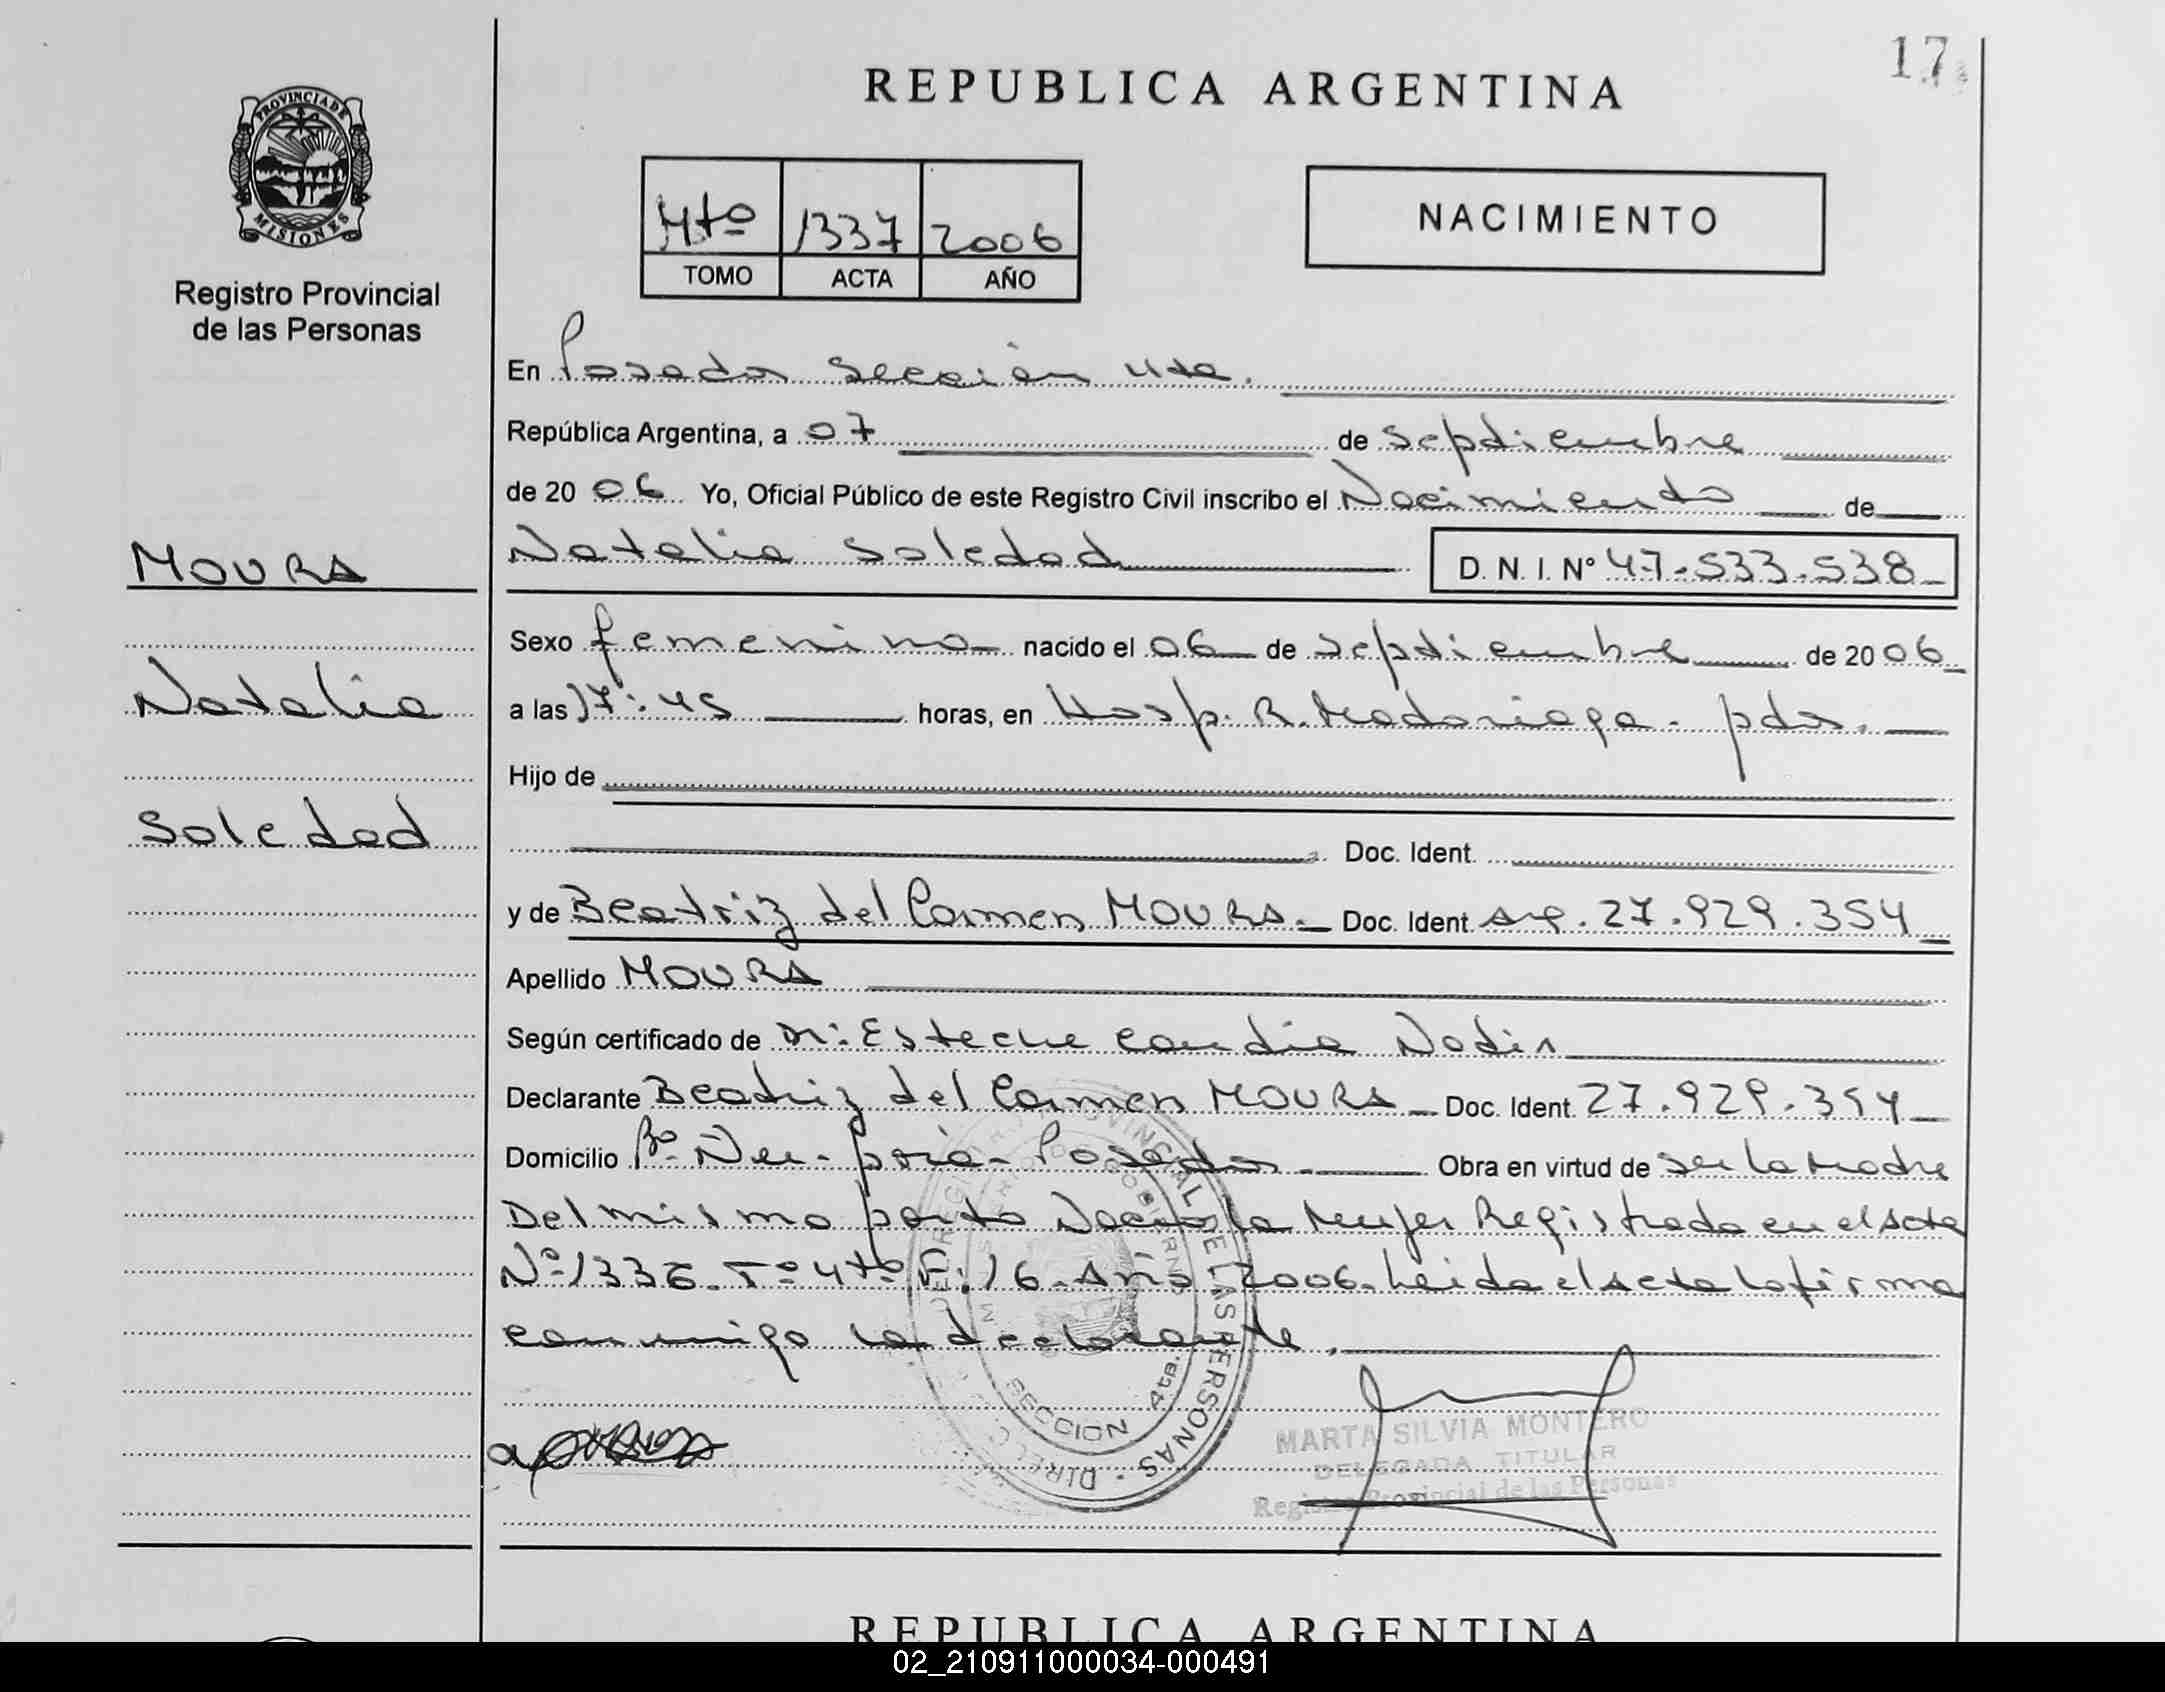 17
REPUBLICA ARGENTINA
PROVINCIA DE
MISIONES
Registro Provincial
de las Personas
4to 1337 2006
TOMO ACTA AÑO
NACIMIENTO
En Posadas Sección 4ta.
República Argentina, a 07 de Septiembre
de 2006 Yo, Oficial Público de este Registro Civil inscribo el Nacimiento de
Natalia Soledad D. N. I. N° 47.533.538
MOURA
Natalia
Soledad
Sexo femenino nacido el 06 de septiembre de 2006
a las 17:45 horas, en Hosp. R. Madariaga - pdas.
Hijo de
Doc. Ident.
y de Beatriz del Carmen MOURA. Doc. Ident. Arg. 27.929.354
Apellido MOURA
Según certificado de Esteche Nadia
Declarante Beatriz del Carmen MOURA Doc. Ident. 27.929.354
Domicilio Bº Posadas. Obra en virtud de ser la Madre
Del mismo parto Nació la Mujer Registrada en el Acta
Nº 1336. Tº 4to. F: 16. Año 2006. Leida el Acta la firma
conmigo la declarante.
DIRECC. GRAL. REGISTRO PROVINCIAL DE LAS PERSONAS
SECCION 4ta.
MARTA SILVIA MONTERO
DELEGADA TITULAR
Registro Provincial de las Personas
REPUBLICA ARGENTINA
02_210911000034-000491